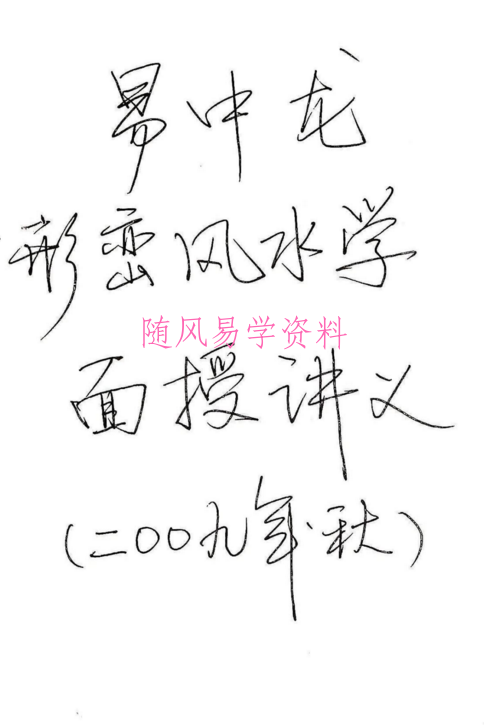 易中龙
形峦风水学
随风易学资料
面授讲义
(二〇〇九年·秋)